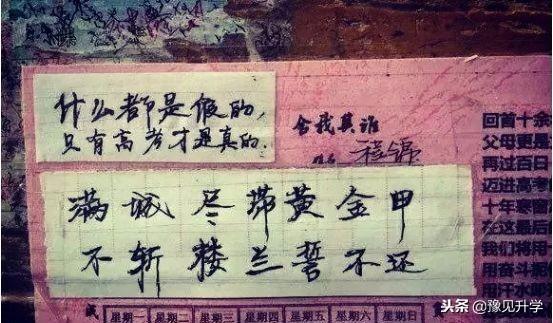 什么都是假的,
只有高考才是真的.
舍我其谁
程锦
满城尽带黄金甲
不斩楼兰誓不还
回首十余
父母更是
再过百日
迈进高考
十年寒窗
在这最后
我们将用
用奋斗
用汗水
星期一 星期二 星期三 星期四 星期五 星期六 星期日
头条 @豫见升学